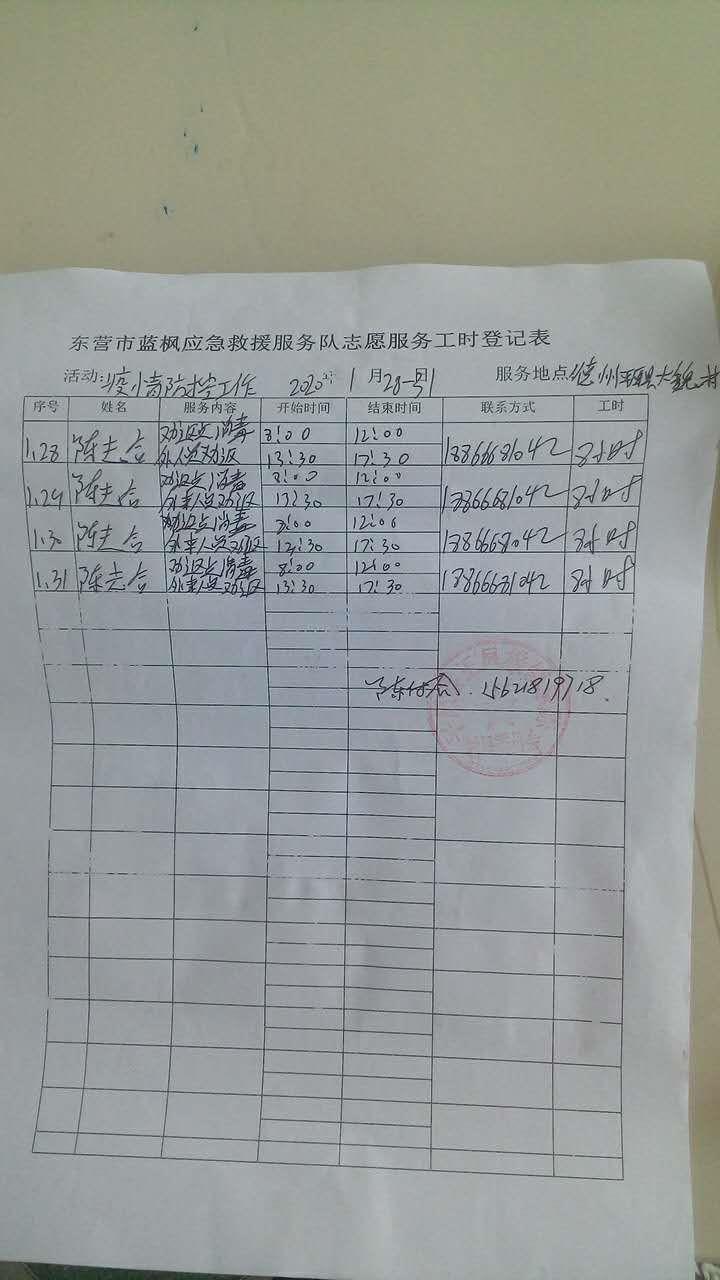 东营市蓝枫应急救援服务队志愿服务工时登记表
活动:疫情防控工作 2020年1月28-31 服务地点 德州 大 村
序号 姓名 服务内容 开始时间 结束时间 联系方式 工时
1.28 陈志合 劝返点消毒 8:00 12:00 13866681042 8小时
外人员劝返 13:30 17:30
1.29 陈志合 劝返点消毒 8:00 12:00 13866681042 8小时
外来人员劝返 13:30 17:30
1.30 陈志合 劝返点消毒 8:00 12:00 13866681042 8小时
外来人员劝返 13:30 17:30
1.31 陈志合 劝返点消毒 8:00 12:00 13866681042 8小时
外来人员劝返 13:30 17:30
陈付合 15621819718